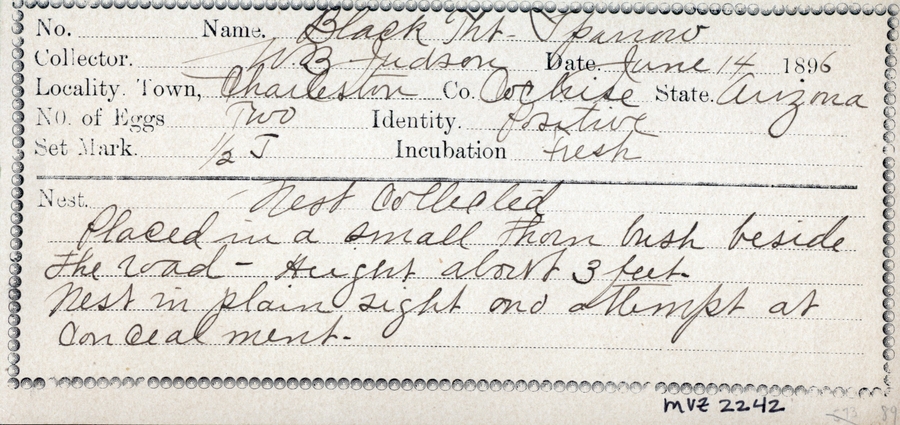 No. Name. Black Tht- Sparrow
Collector. W B Judson Date June 14 1896
Locality. Town, Charleston Co. Cochise State. Arizona
No. of Eggs Two Identity. Positive
Set Mark. 1/2 J Incubation Fresh
Nest. Nest Collected
Placed in a small thorn bush beside
the road - Hught about 3 feet-
Nest in plain sight and attempt at
concealment-
MVZ 2242